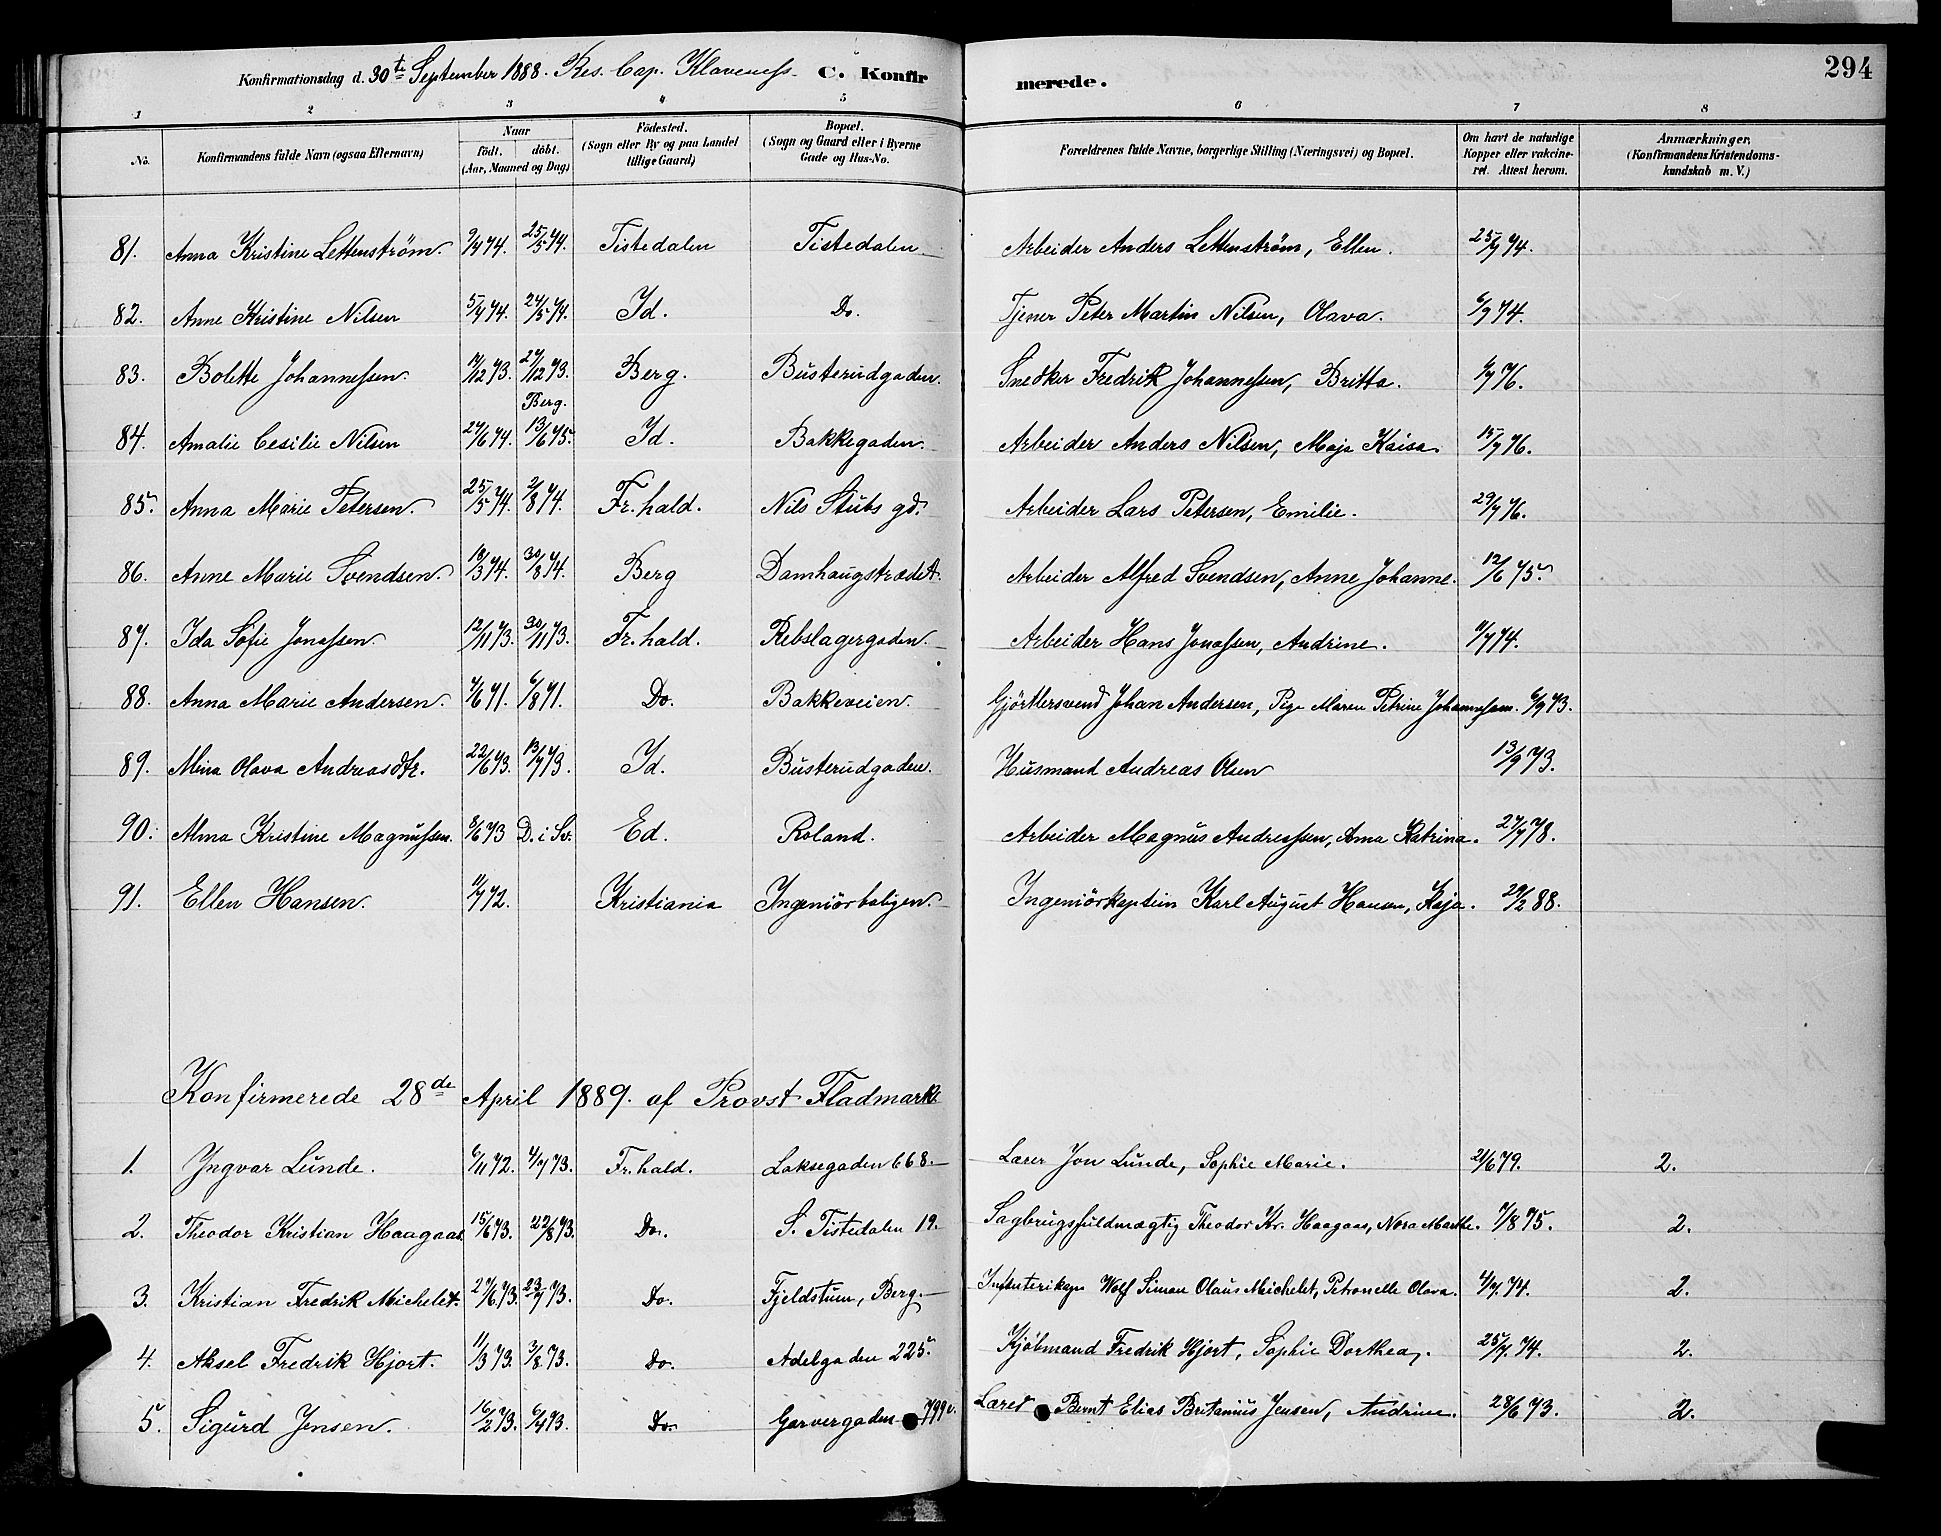 294
Konfirmationsdag d. 30te September 1888. Res. Cap. Klaveness. C. Konfirmerede.
1 2 3 4 5 6 7 8
No. Konfirmandens fulde Navn (ogsaa Efternavn) Naar født. døbt. (Aar, Maaned og Dag) Fødested. (Sogn eller By og paa Landet tillige Gaard) Bopæl. (Sogn og Gaard eller i Byerne Gade og Hus-No. Forældrenes fulde Navne, borgerlige Stilling (Næringsvei) og Bopæl. Om havt de naturlige Kopper eller vakcineret. Attest herom. Anmærkninger, (Konfirmandens Kristendomskundskab m. V.)
81. Anna Kristine Lettenström. 9/4 74. 25/5 74. Tistedalen Tistedalen Arbeider Anders Lettenström, Ellen. 25/7 74.
82. Anne Kristine Nilsen 5/4 74. 24/5 74. Id. Do. Tjener Peter Martin Nilsen, Olava. 6/9 74.
83. Bolette Johannessen. 14/12 73. 27/12 73. Berg. Busterudgaden. Snedker Fredrik Johannessen, Britta. 4/7 76.
84. Amalie Cesilie Nilsen 24/6 74. Berg. 13/6 75. Id. Bakkegaden. Arbeider Anders Nilsen, Maja Kaisa. 15/7 76.
85. Anna Marie Petersen. 25/5 74. 2/8 74. Fr.hald. Nils Stubs gd. Arbeider Lars Petersen, Emilie. 29/7 76.
86. Anne Marie Svendsen. 18/3 74. 30/8 74. Berg Damhaugstrædet. Arbeider Alfred Svendsen, Anne Johanne. 12/6 75.
87. Ida Sofie Jonassen. 12/11 73. 30/11 73. Fr.hald. Rebslagergaden. Arbeider Hans Jonassen, Andrine. 11/7 74.
88. Anna Marie Andersen. 4/6 71. 6/8 71. Do. Bakkeveien. Gjörtlersvend Johan Andersen, Pige Maren Petrine Johannessen. 6/9 73.
89. Mina Olava Andreasdtr. 22/6 73. 13/7 73. Id. Busterudgaden. Husmand Andreas Olsen 13/9 73.
90. Alma Kristine Magnussen. 8/6 73 D. i Sv. Ed. Roland. Arbeider Magnus Andreassen, Anna Katrina. 27/7 78.
91. Ellen Hansen. 11/7 72. Kristiania Ingeniörboligen. Ingeniörkaptein Karl August Hansen, Kaja. 29/2 88.
Konfirmerede 28de April 1889. af Provst Fladmark
1. Yngvar Lunde. 6/11 72. 4/7 73. Fr.hald. Laksegaden 668. Lærer Jon Lunde, Sophie Marie. 21/6 79. 2.
2. Theodor Kristian Haagaas 15/6 73. 22/8 73. Do. S. Tistedalen 19. Sagbrugsfuldmægtig Theodor Kr. Haagaas, Nora Marthe. 7/8 75. 2.
3. Kristian Fredrik Michelet. 27/6 73. 23/7 73. Do. Fjeldstum, Berg. Wolf Simon Olaus Michelet, Petronelle Olava. 4/7 74. 2.
4. Aksel Fredrik Hjort. 11/3 73. 3/8 73. Do. Adelgaden 225. Kjöbmand Fredrik Hjort, Sophie Dorthea. 25/7 74. 2.
5. Sigurd Jensen. 16/2 73. 6/4 73. Do. Garvergaden Lærer Bernt Elias Britanius Jensen, Andrine. 28/6 73. 2.